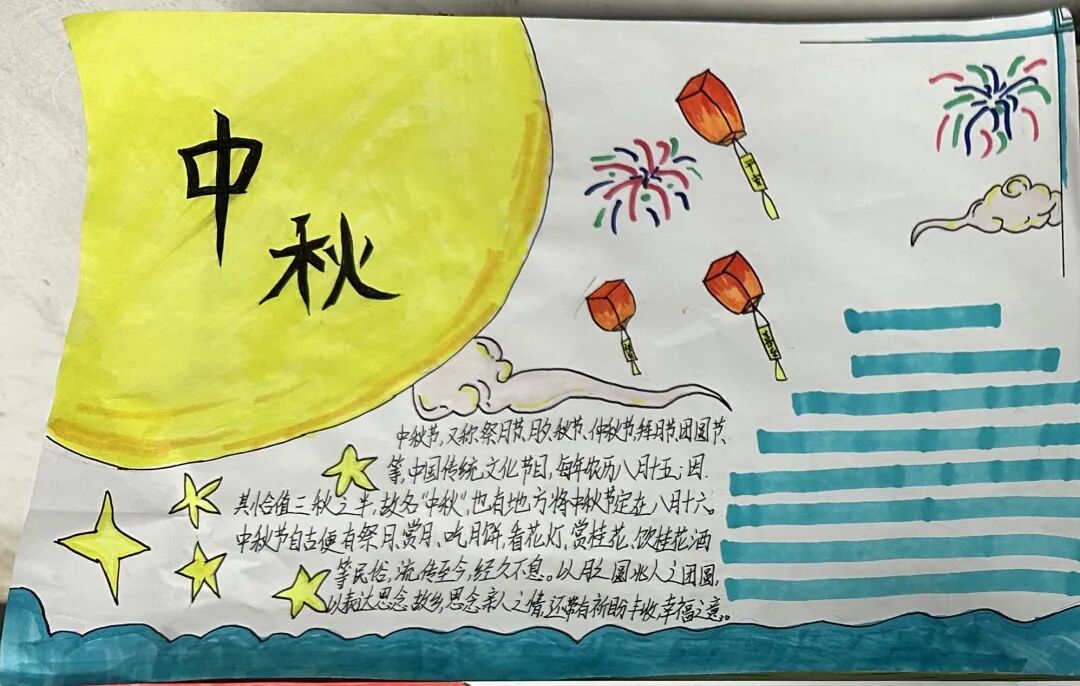 中
秋
中秋节,又称祭月节、月夕、秋节、仲秋节、拜月节、团圆节、
等,中国传统文化节日,每年农历八月十五;因
其恰值三秋之半,故名“中秋”也有地方将中秋节定在八月十六。
中秋节自古便有祭月、赏月、吃月饼、看花灯、赏桂花、饮桂花酒
等民俗,流传至今,经久不息。以月之圆兆人之团圆,
以表达思念故乡,思念亲人之情,还带有祈盼丰收、幸福之意。